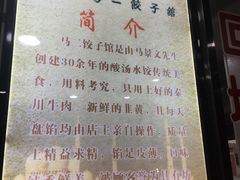 二餃子館
简介
马二饺子馆是由马景文先生
创建30余年的酸汤水饺传统美
食，用料考究，只用上好的秦
川牛肉、新鲜的韭黄，且每天
盘馅均由店主亲自操作，质量
上精益求精，馅是皮薄，